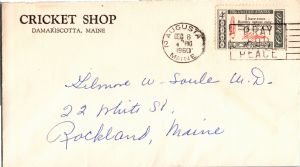 CRICKET SHOP
DAMARISCOTTA, MAINE
AUGUSTA
DEC 8
4 PM
1960
MAINE
PRAY
FOR
PEACE
4¢
Gilmore W. Soule M.D.
22 White St.
Rockland, Maine